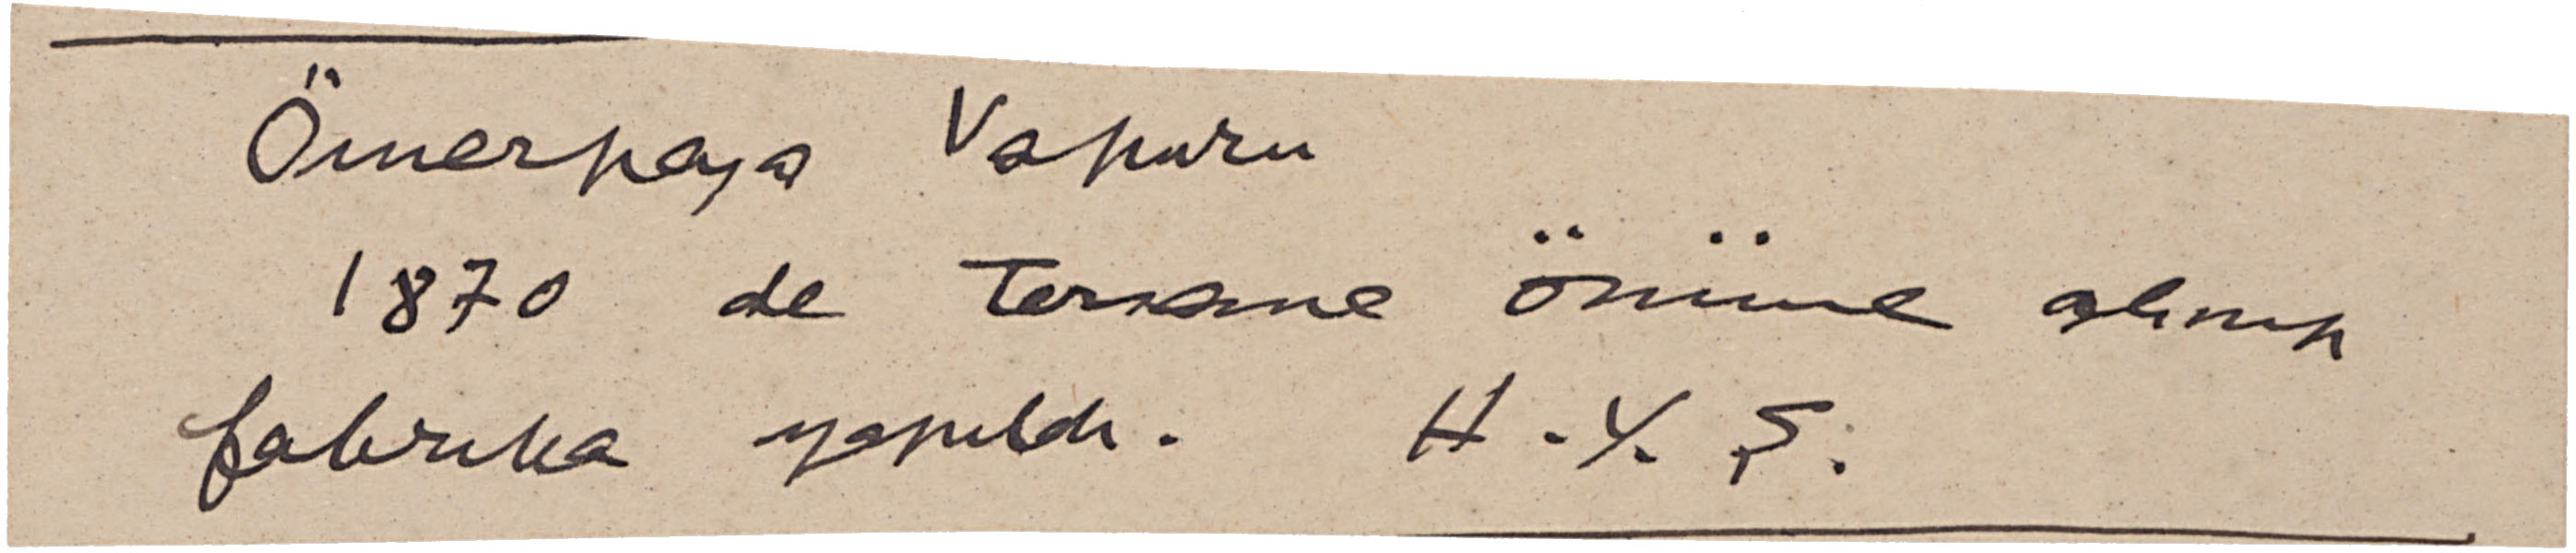 Ömerpaşa Vapuru
1870 de Tersane önüne alınıp
fabrika yapıldı. H.Y.Ş.